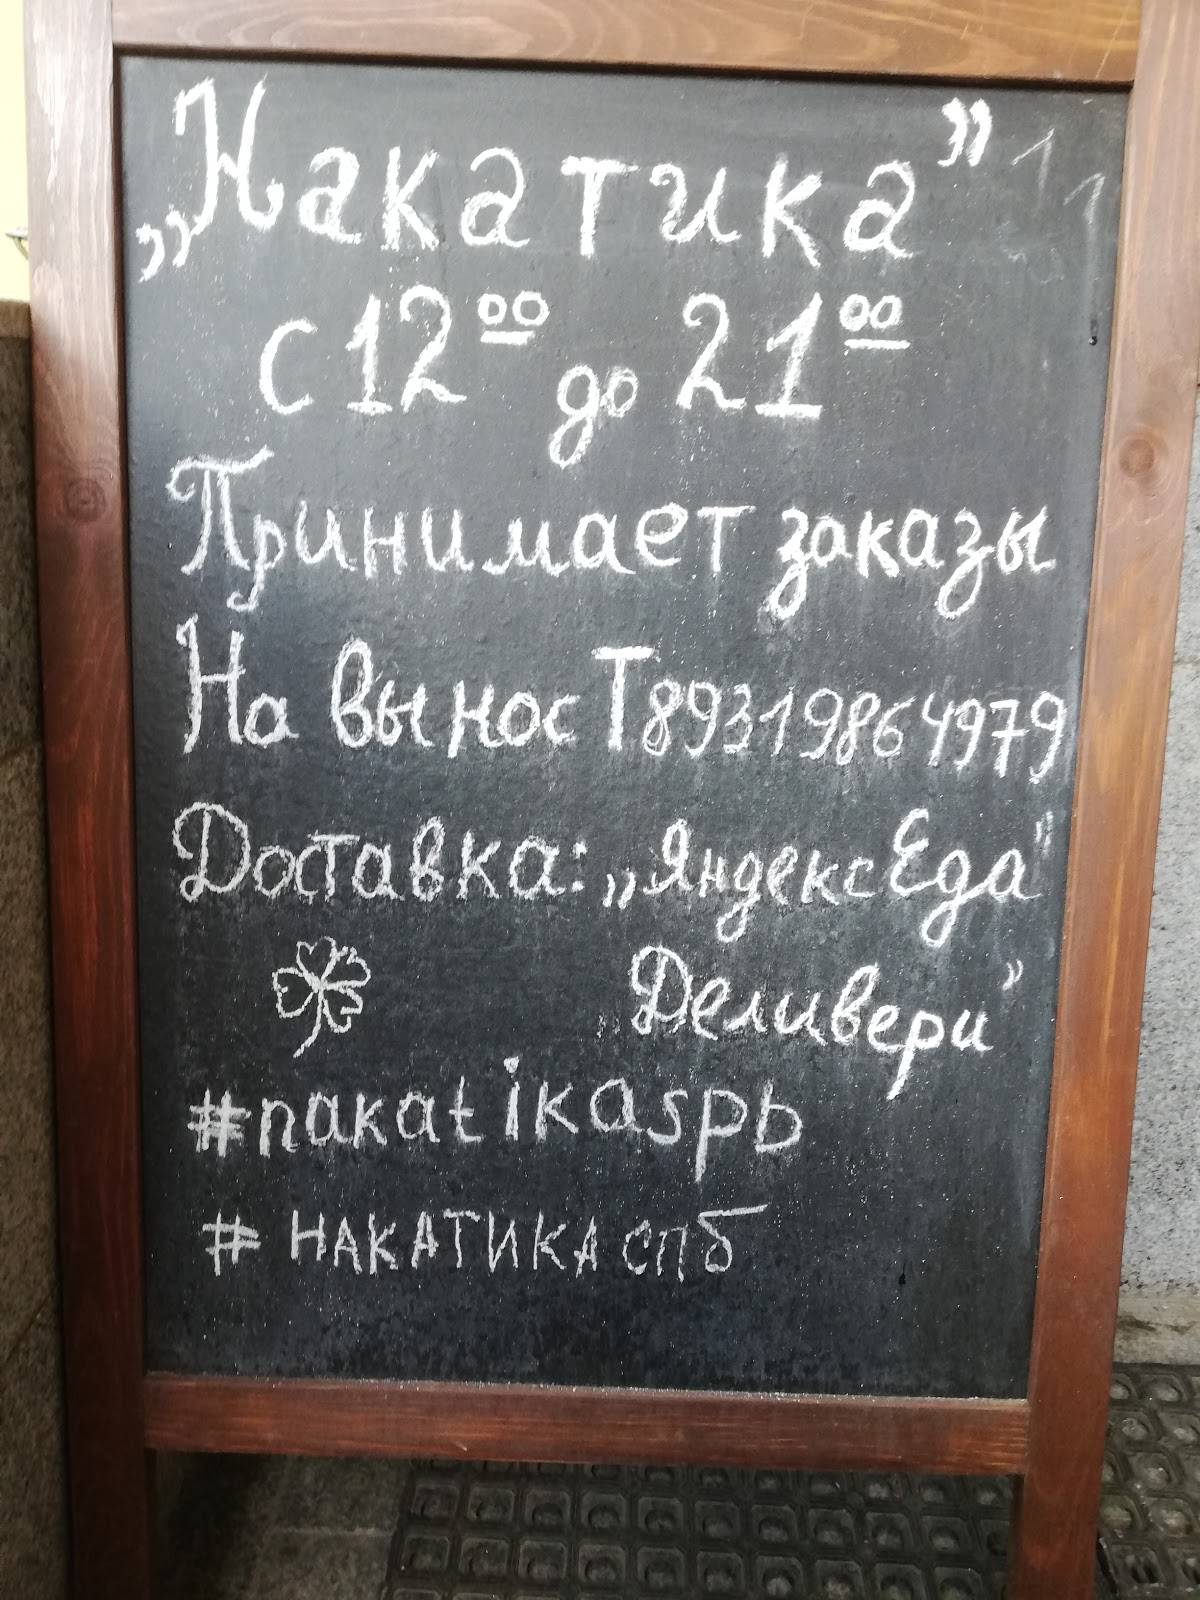 „Накатика”
с 12⁰⁰ до 21⁰⁰
Принимает заказы
На вынос Т89319864979
Доставка: „ЯндексЕда"
„Деливери”
#nakatikaspb
# НАКАТИКАСПБ